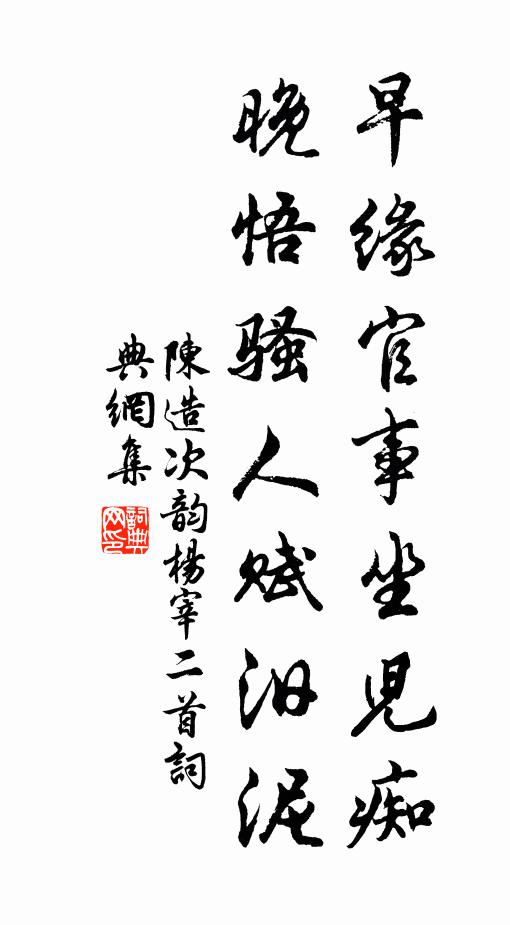 早緣官事坐児痴
晚悟騷人賦汨泥
陳造次韵楊宰二首詞
典網集
詞典网印